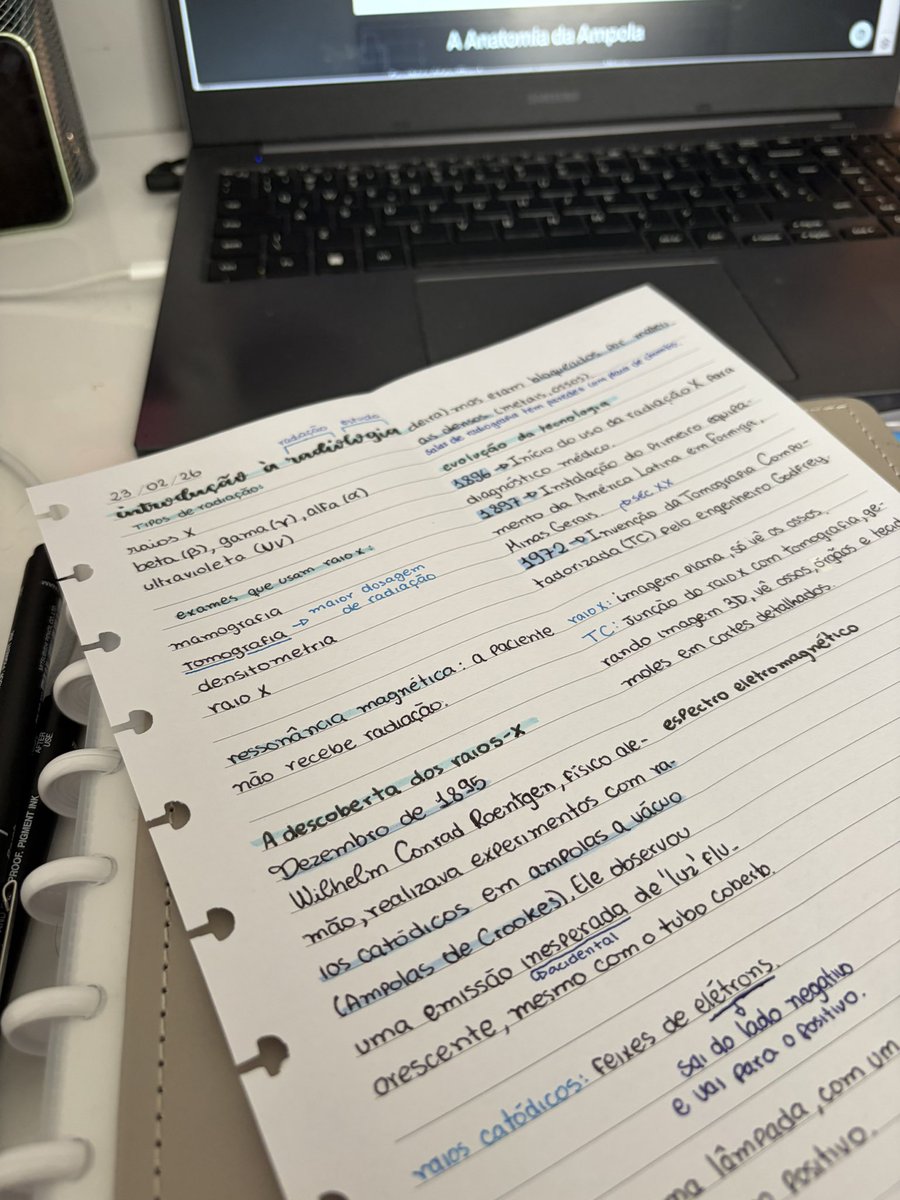 A Anatomia da Ampola
SAMSUNG
23/02/26
radiação estudo
introdução à radiologia
Tipos de radiação:
raios X
beta (β), gama (γ), alfa (α)
ultravioleta (UV)
exames que usam raio x:
mamografia
Tomografia → maior dosagem
de radiação
densitometria
raio X
ressonância magnética: a paciente
não recebe radiação.
A descoberta dos raios-X
Dezembro de 1895
Wilhelm Conrad Roentgen, físico ale-
mão, realizava experimentos com ra-
ios catódicos em ampolas a vácuo
(Ampolas de Crookes). Ele observou
uma emissão inesperada de 'luz' flu-
↳acidental
orescente, mesmo com o tubo coberto.
raios catódicos: feixes de elétrons.
sai do lado negativo
e vai para o positivo.
ma lâmpada, com um
positivo.
deira) mas eram bloqueados por materi-
ais densos (metais, ossos).
salas de radiografia tem paredes com placa de chumbo
evolução da tecnologia
1896 → Início do uso da radiação X para
diagnóstico médico.
1897 → Instalação do primeiro equipa-
mento da América Latina em Formiga,
Minas Gerais. → séc. XX
1972 → Invenção da Tomografia Compu-
tadorizada (TC) pelo engenheiro Godfrey
raio X: imagem plana, só vê os ossos.
TC: Junção do raio X com tomografia, ge-
rando imagem 3D, vê ossos, órgãos e tecid
moles em cortes detalhados.
espectro eletromagnético
AFTER
USE
PROOF PIGMENT INK